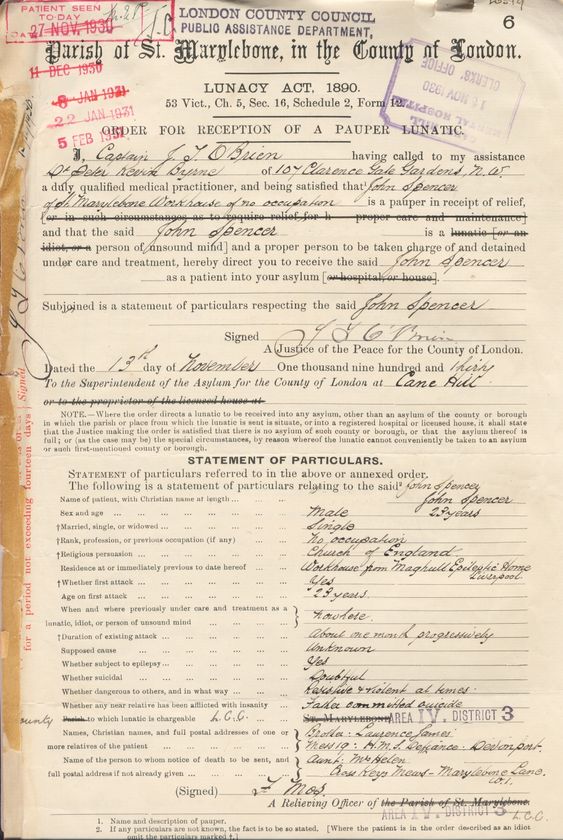 PATIENT SEEN
TO-DAY
27 NOV. 1930
11 DEC 1930
8 JAN 1931
22 JAN 1931
5 FEB 1931
LONDON COUNTY COUNCIL
PUBLIC ASSISTANCE DEPARTMENT,
6
Parish of St. Marylebone, in the County of London.
MENTAL HOSPITAL
15 NOV 1930
CLERKS' OFFICE
LUNACY ACT, 1890.
53 Vict., Ch. 5, Sec. 16, Schedule 2, Form 12.
ORDER FOR RECEPTION OF A PAUPER LUNATIC.
I, Captain J. J. O'Brien having called to my assistance
Dr Peter Kevin Byrne of 107 Clarence Gate Gardens, N.W.
a duly qualified medical practitioner, and being satisfied that John Spencer
of St Marylebone Workhouse of no occupation is a pauper in receipt of relief,
[or in such circumstances as to require relief for h proper care and maintenance]
and that the said John Spencer is a lunatic [or an
idiot, or a person of unsound mind] and a proper person to be taken charge of and detained
under care and treatment, hereby direct you to receive the said John Spencer
as a patient into your asylum [or hospital, or house].
Subjoined is a statement of particulars respecting the said John Spencer
Signed J J O'Brien
A Justice of the Peace for the County of London.
Dated the 13th day of November One thousand nine hundred and thirty
To the Superintendent of the Asylum for the County of London at Cane Hill
or to the proprietor of the licensed house at
NOTE.—Where the order directs a lunatic to be received into any asylum, other than an asylum of the county or borough
in which the parish or place from which the lunatic is sent is situate, or into a registered hospital or licensed house, it shall state
that the Justice making the order is satisfied that there is no asylum of such county or borough, or that the asylum thereof is
full; or (as the case may be) the special circumstances, by reason whereof the lunatic cannot conveniently be taken to an asylum
or such first-mentioned county or borough.
STATEMENT OF PARTICULARS.
STATEMENT of particulars referred to in the above or annexed order.
The following is a statement of particulars relating to the said John Spencer
Name of patient, with Christian name at length John Spencer
Sex and age Male 23 years
†Married, single, or widowed Single
†Rank, profession, or previous occupation (if any) No occupation
†Religious persuasion Church of England
Residence at or immediately previous to date hereof Workhouse from Maghull Epileptic Home
Liverpool.
†Whether first attack Yes
Age on first attack 23 years.
When and where previously under care and treatment as a
lunatic, idiot, or person of unsound mind nowhere.
†Duration of existing attack About one month progressively
Supposed cause Unknown
Whether subject to epilepsy Yes
Whether suicidal Doubtful
Whether dangerous to others, and in what way Resistive & violent at times.
Whether any near relative has been afflicted with insanity Father committed suicide
county Parish to which lunatic is chargeable L.C.C. ST. MARYLEBONE AREA IV. DISTRICT 3
Names, Christian names, and full postal addresses of one or Brother: Laurence James
more relatives of the patient Mess 19: H.M.S. Defiance: Devonport.
Name of the person to whom notice of death to be sent, and Aunt: Mrs Helen
full postal address if not already given Cross Keys Mews - Marylebone Lane.
W.1.
(Signed) F Mos
A Relieving Officer of the Parish of St. Marylebone.
AREA IV. DISTRICT 3 L.C.C.
1. Name and description of pauper.
2. If any particulars are not known, the fact is to be so stated. [Where the patient is in the order described as an idiot
omit the particulars marked †.]
for a period not exceeding fourteen days
Signed